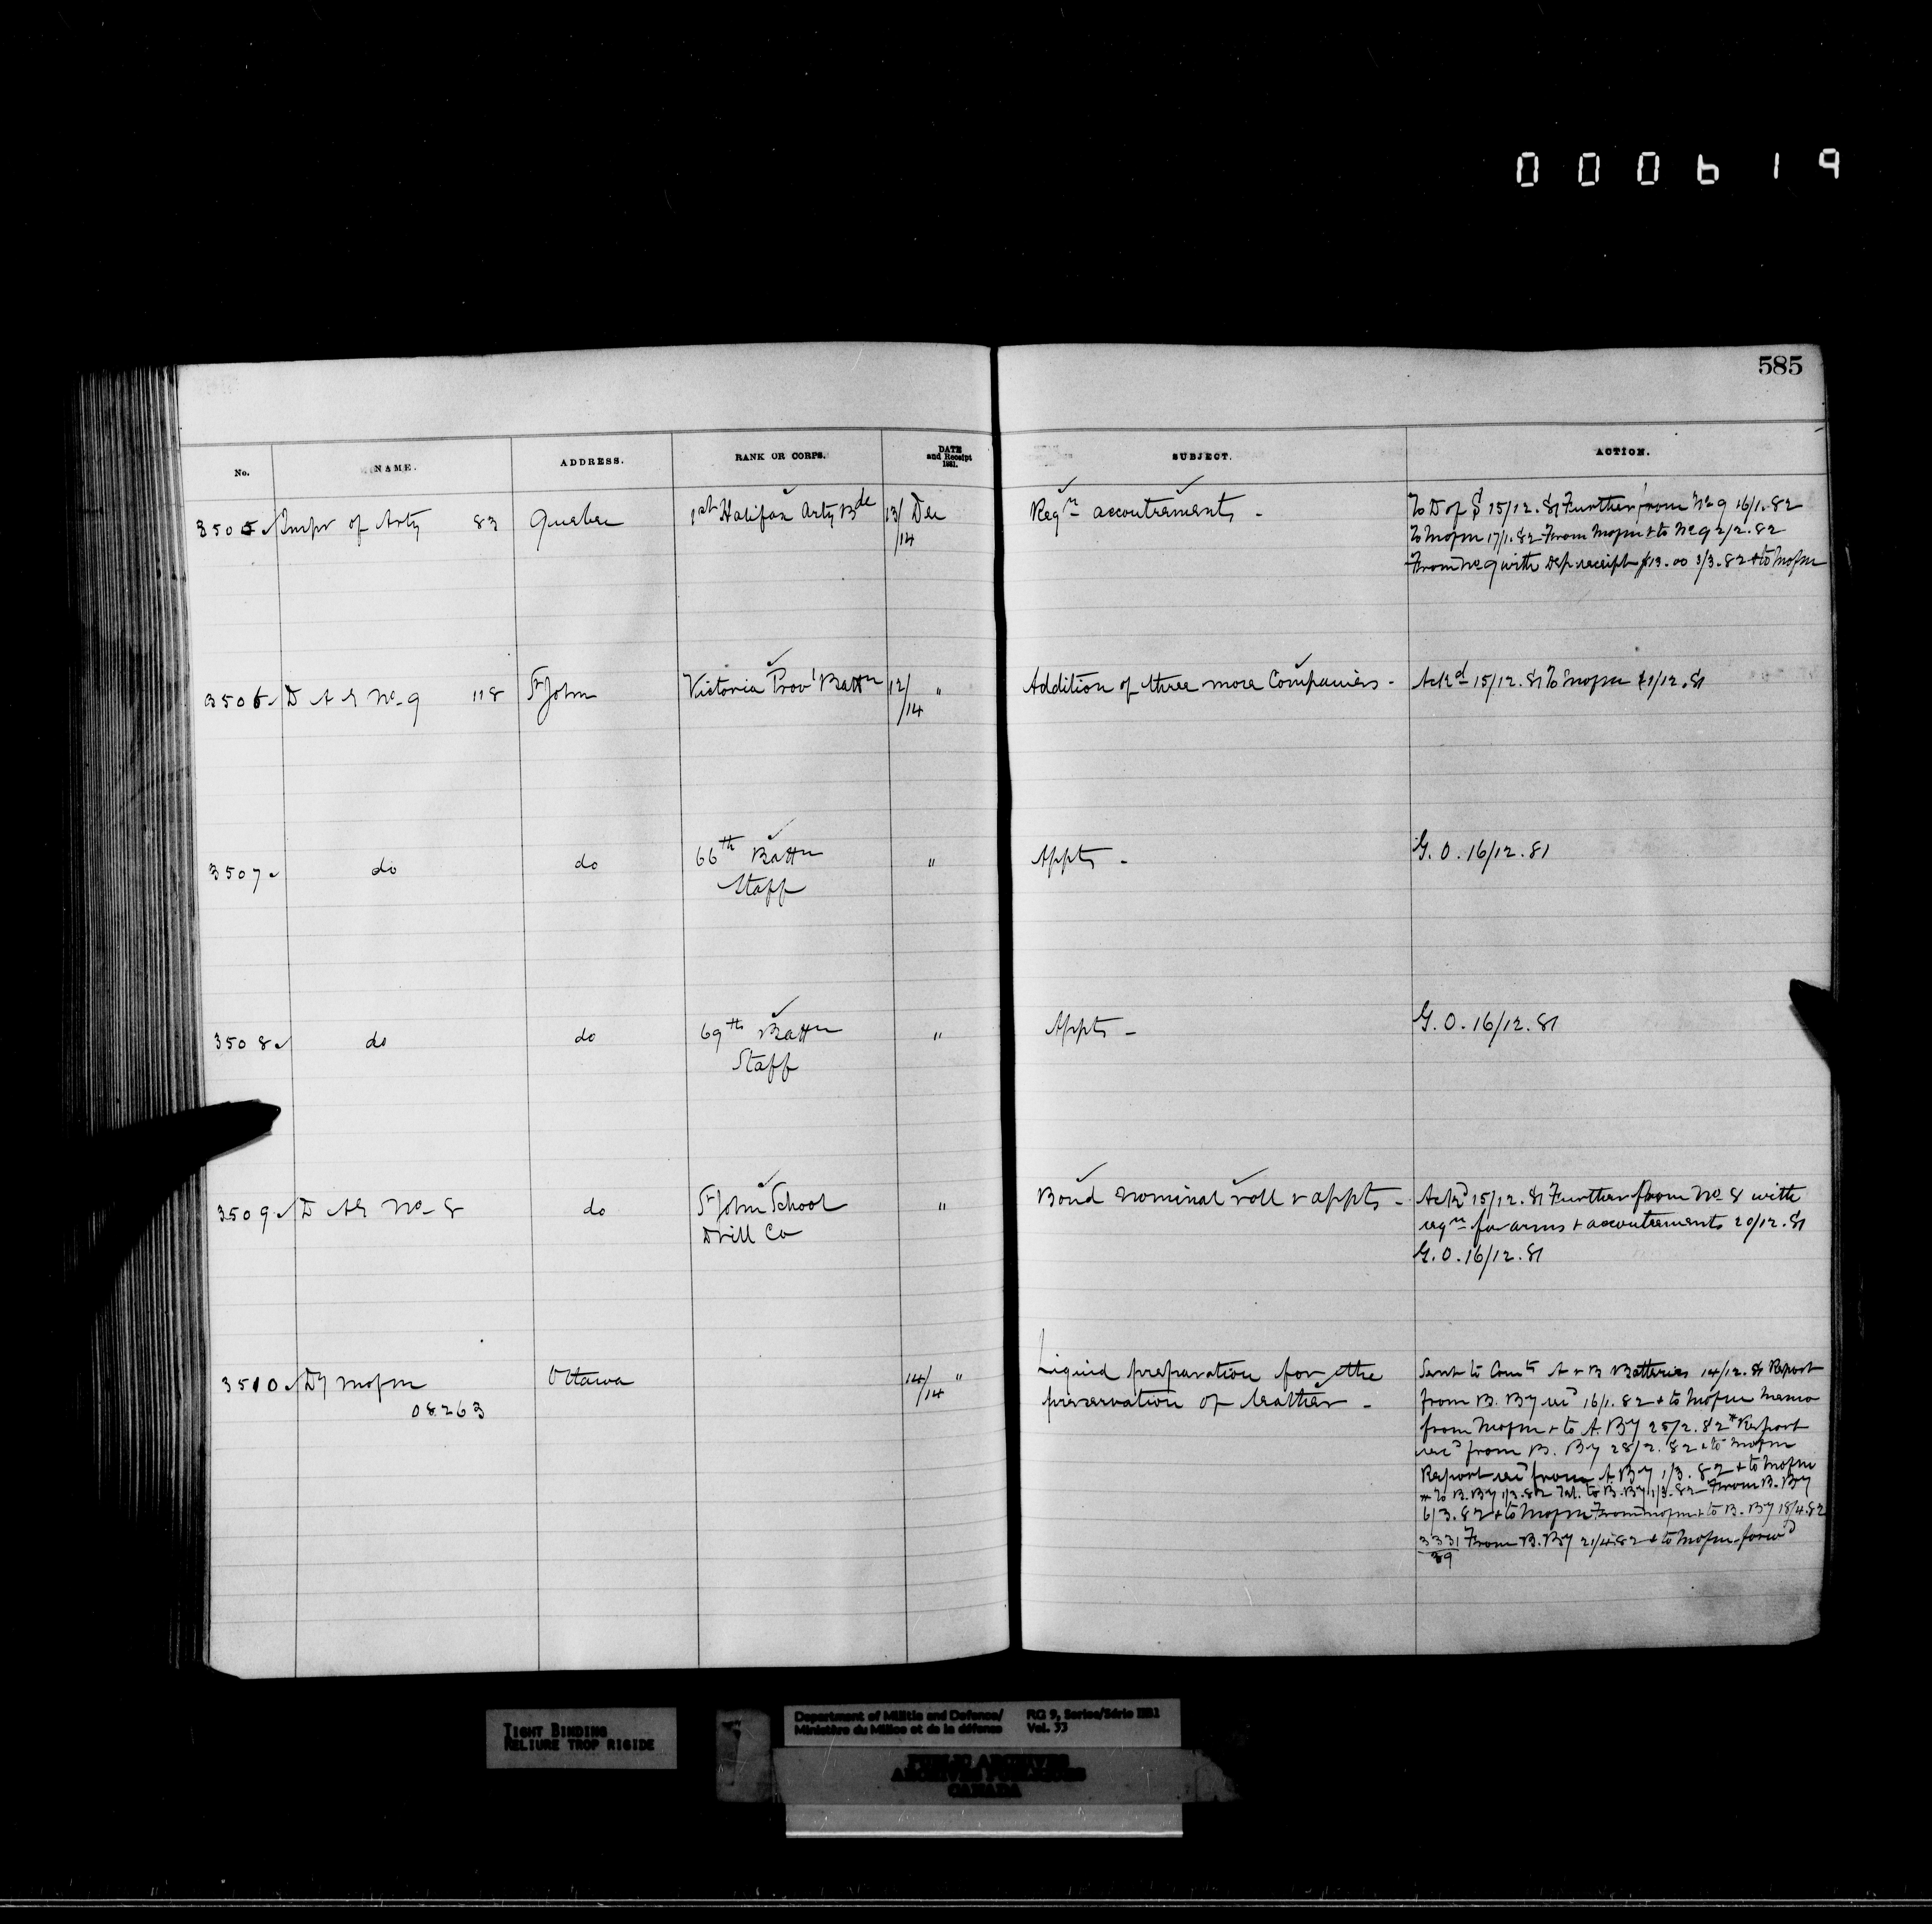 0 0 0 6 1 9
585
No. NAME. ADDRESS. RANK OR CORPS. DATE and Receipt 1881. SUBJECT. ACTION.
3505 Inspr of Arty 83 Quebec 1st Halifax Arty Bde 13/14 Dec Reqn accoutrements -
To D of S 15/12.81 Further from No 9 16/1.82
To Mofm 17/1.82 From Mofm + to No 9 2/2.82
From No 9 with Dep receipt $13.00 3/3.82 + to Mofm
3506 D A G No 9 118 St John Victoria Provl Battn 12/14 " Addition of three more Companies - Ackd 15/12.81 To Mofm 21/12.81
3507 do do 66th Battn " Appts - G.O. 16/12.81
Staff
3508 do do 69th Battn " Appts - G.O. 16/12.81
Staff
3509 D AG No 8 do St John School " Bond nominal roll & appts - Ackd 15/12.81 Further from No 8 with
Drill Co reqn for arms + accoutrements 20/12.81
G.O. 16/12.81
3510 Dy Mofm Ottawa 14/14 " Liquid preparation for the
08263 preservation of leather -
Sent to Comts A & B Batteries 14/12.81 Report
from B. By recd 16/1.82 + to Mofm Memo
from Mofm + to A. By 25/2.82 * Report
recd from B. By 28/2.82 + to Mofm
Report recd from A By 1/3.82 + to Mofm
* To B. By 1/3.82 to B. By 1/3.82 From B. By
6/3.82 + to Mofm From Mofm + to B. By 18/4.82
3331/89 From B. By 21/4.82 + to Mofm forwd
TIGHT BINDING
RELIURE TROP RIGIDE
Department of Militia and Defence/ RG 9, Series/Série IIB1
Ministère du Milice et de la défense Vol. 33
PUBLIC ARCHIVES
ARCHIVES PUBLIQUES
CANADA